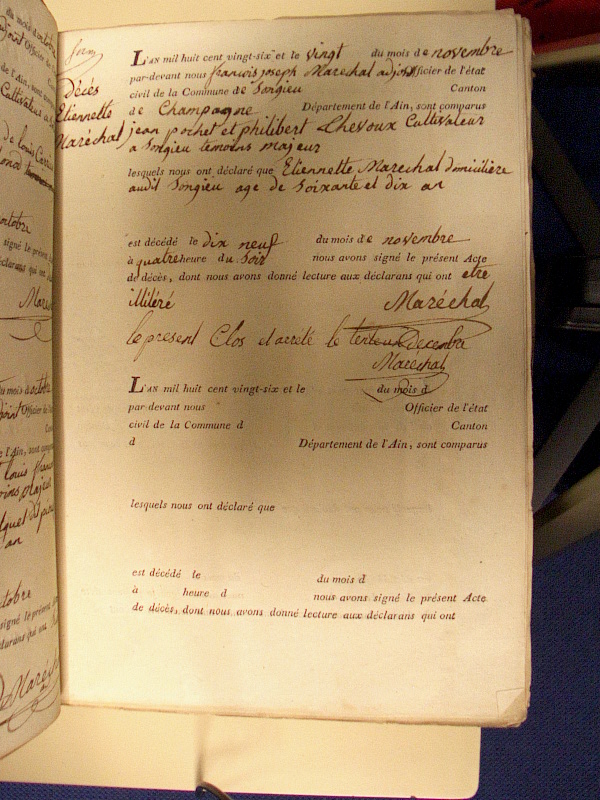 du mois d octobre
adjoint Officier de
de l'Ain, sont
Cultivateur a
de louis
octobre
signé le présent
déclarans qui ont
Maré
du mois d octobre
adjoint Officier
de l'Ain, sont
louis
octobre
signé le présent
déclarans qui ont
Maré
Décès
Etiennette
Maréchal
L'AN mil huit cent vingt-six et le vingt du mois de novembre
par-devant nous francois joseph Marechal adjoint Officier de l'état
civil de la Commune de Songieu Canton
de Champagne Département de l'Ain, sont comparus
jean pochet et philibert Chevoux Cultivateur
a Songieu temoins majeur
lesquels nous ont déclaré que Etiennette Marechal domiciliére
audit Songieu age de Soixante et dix an
est décédé le dix neuf du mois de novembre
à quatre heure du Soir nous avons signé le présent Acte
de décès, dont nous avons donné lecture aux déclarans qui ont etre
illiléré Maréchal
le present Clos et arreté le decembre
Maréchal
L'AN mil huit cent vingt-six et le du mois d
par-devant nous Officier de l'état
civil de la Commune d Canton
d Département de l'Ain, sont comparus
lesquels nous ont déclaré que
est décédé le du mois d
à heure d nous avons signé le présent Acte
de décès, dont nous avons donné lecture aux déclarans qui ont